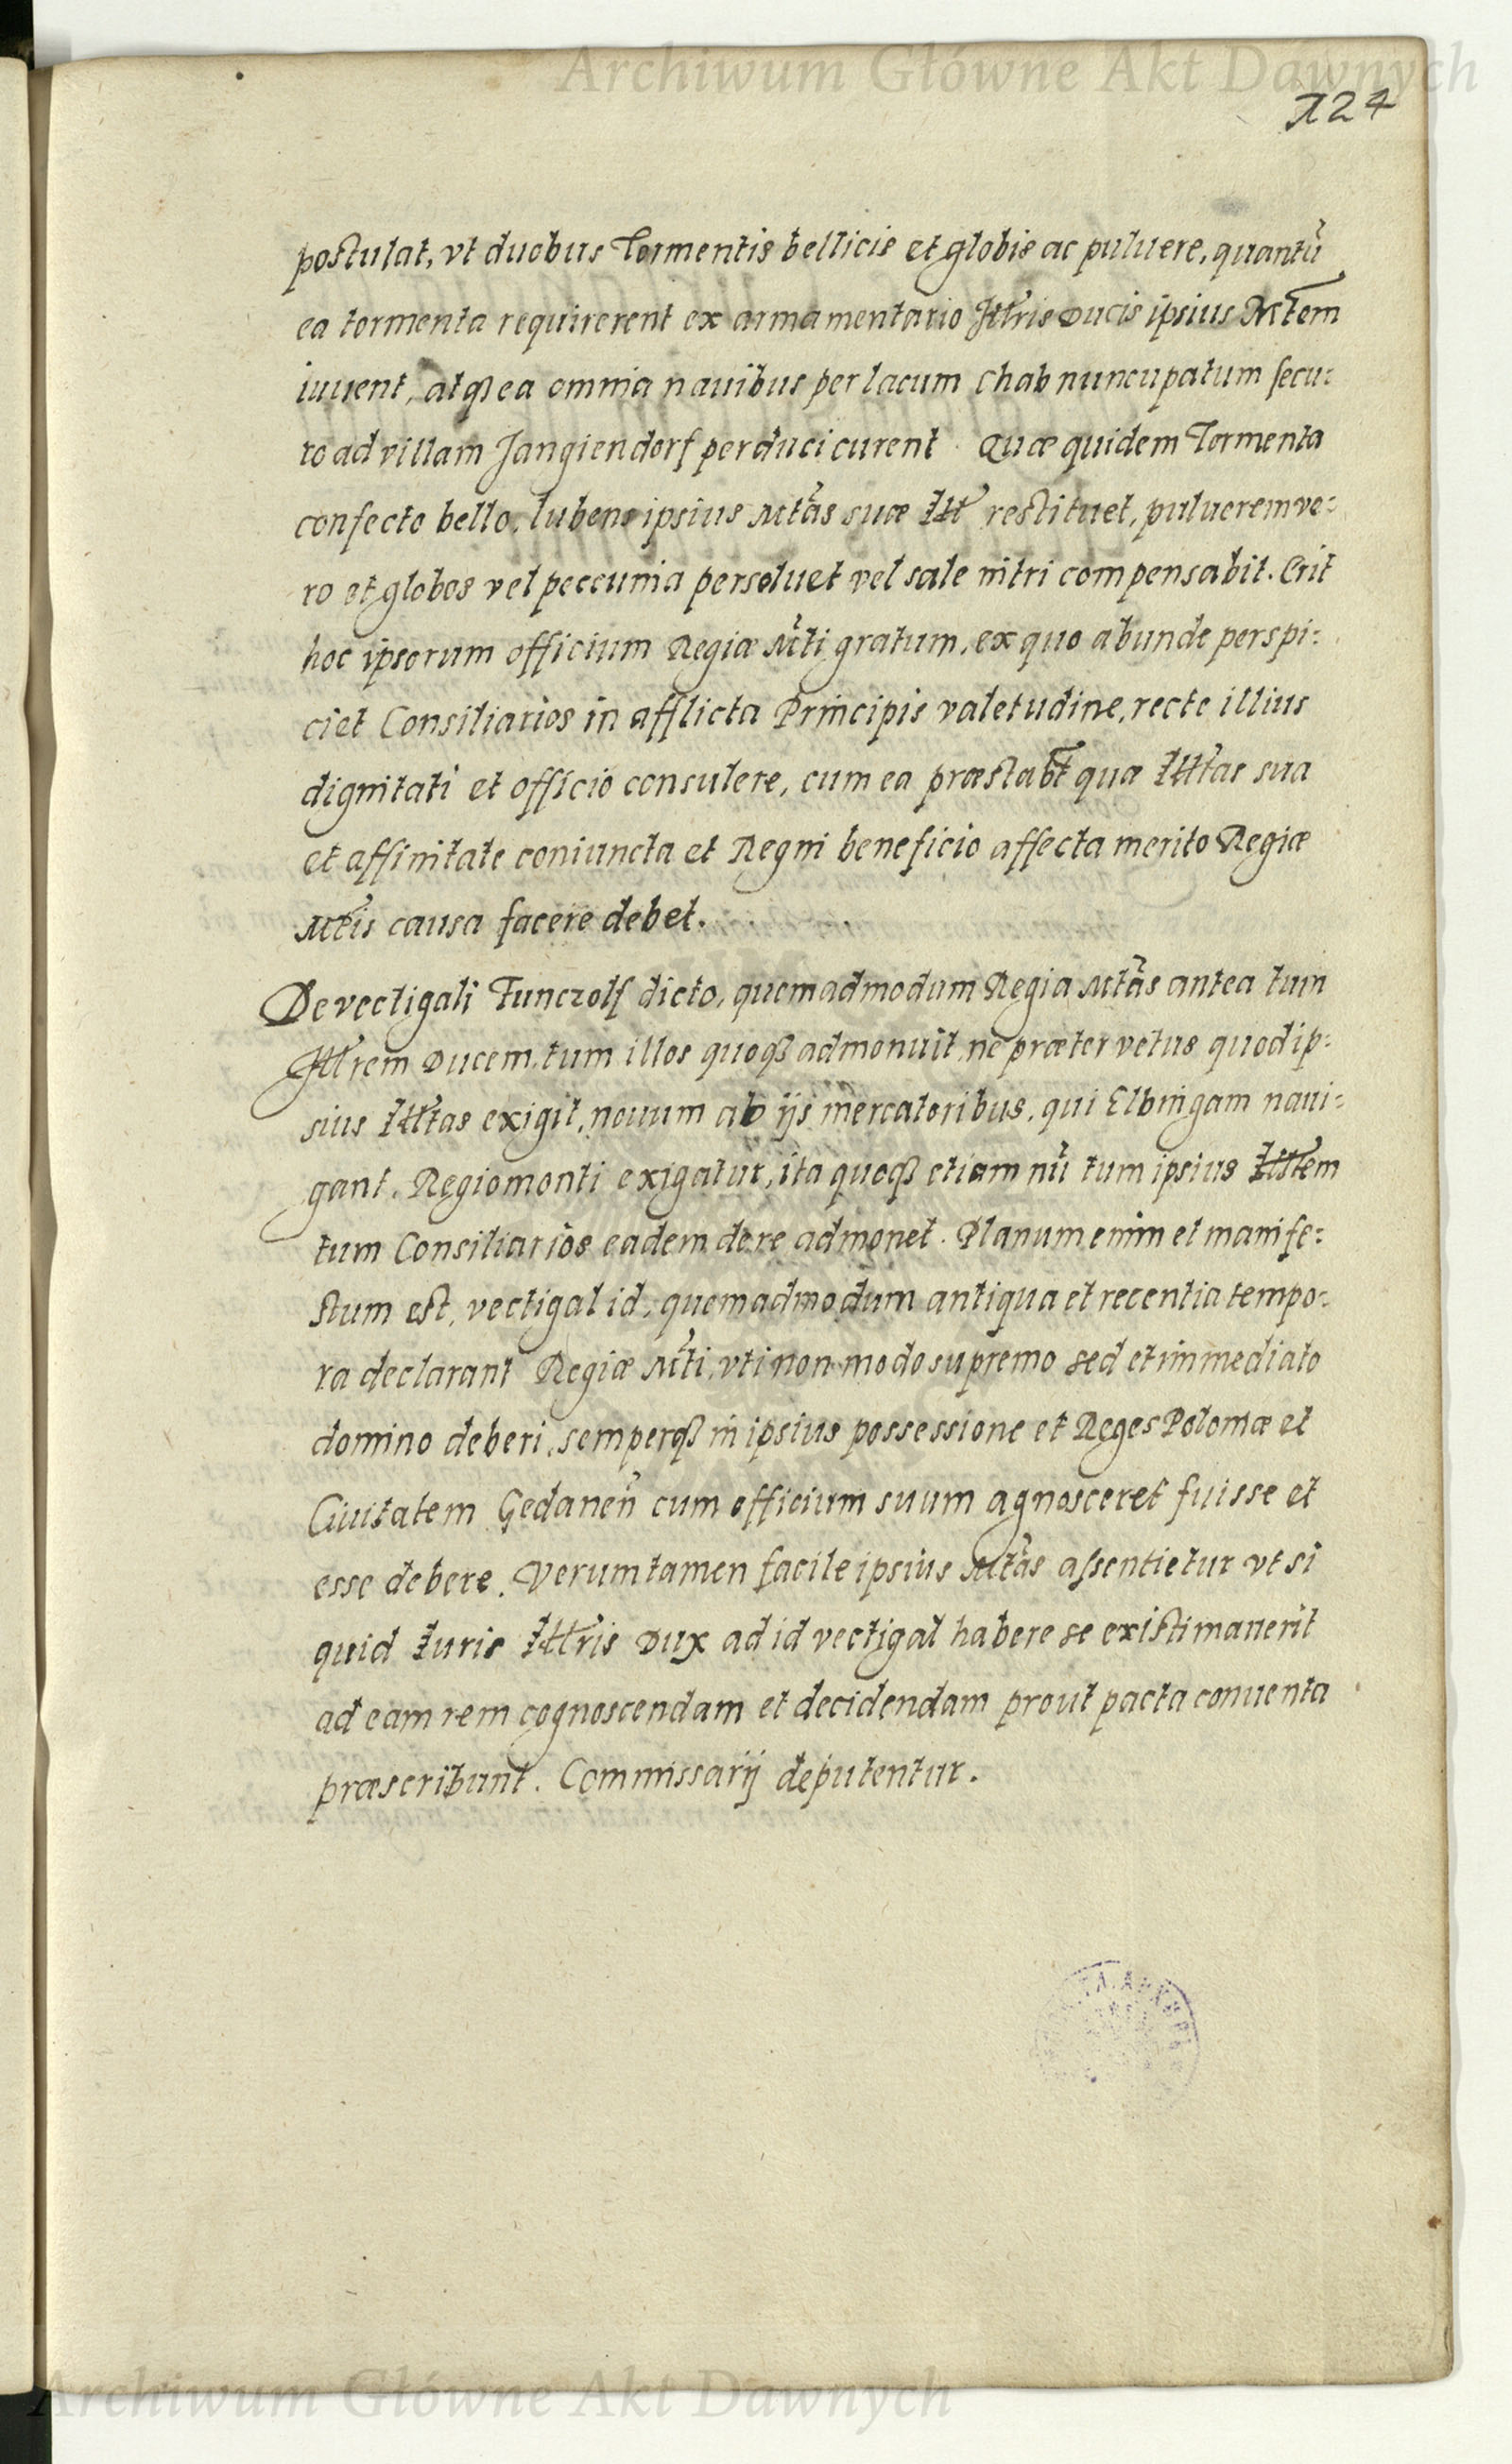 Archiwum Główne Akt Dawnych
124
postulat, vt duobus Tormentis bellicis et globis ac puluere, quantũ
ea tormenta requirerent ex armamentario Illris Ducis ipsius Mtem
iuuent, atq3 ea omnia nauibus per lacum Chab nuncupatum secu:
ro ad villam Jangiendorf perduci curent. Quæ quidem Tormenta
confecto bello, lubens ipsius Mtas suæ Ill restituet, puluerem ve:
ro et globos vel peccunia persoluet vel sale nitri compensabit. Erit
hoc ipsorum officium Regiæ Mti gratum, ex quo abunde perspi:
ciet Consiliarios in afflicta Principis valetudine, recte illius
dignitati et officio consulere, cum ea præstabt quæ Illtas sua
et affinitate coniuncta et Regni beneficio affecta merito Regiæ
Mtis causa facere debet.
De vectigali Funczols dicto, quemadmodum Regia Mtas antea tum
Illrem Ducem, tum illos quoq3 admonuit, ne præter vetus quod ip:
sius Illtas exigit, nouum ab ijs mercatoribus, qui Elbingam naui:
gant, Regiomonti exigatur, ita quoq3 etiam nũ tum ipsius Illtem
tum Consiliarios eadem de re admonet. Planum enim et manife:
stum est, vectigal id, quemadmodum antiqua et recentia tempo:
ra declarant Regiæ Mti, vti non modo supremo sed et immediato
domino deberi, semperq3 in ipsius possessione et Reges Poloniæ et
Ciuitatem Gedaneñ cum officium suum agnosceret fuisse et
esse debere. Verumtamen facile ipsius Mtas assentietur vt si
quid Iuris Illris Dux ad id vectigal habere se existimauerit
ad eam rem cognoscendam et decidendam prout pacta conuenta
præscribunt. Commissarij deputentur.
Archiwum Główne Akt Dawnych